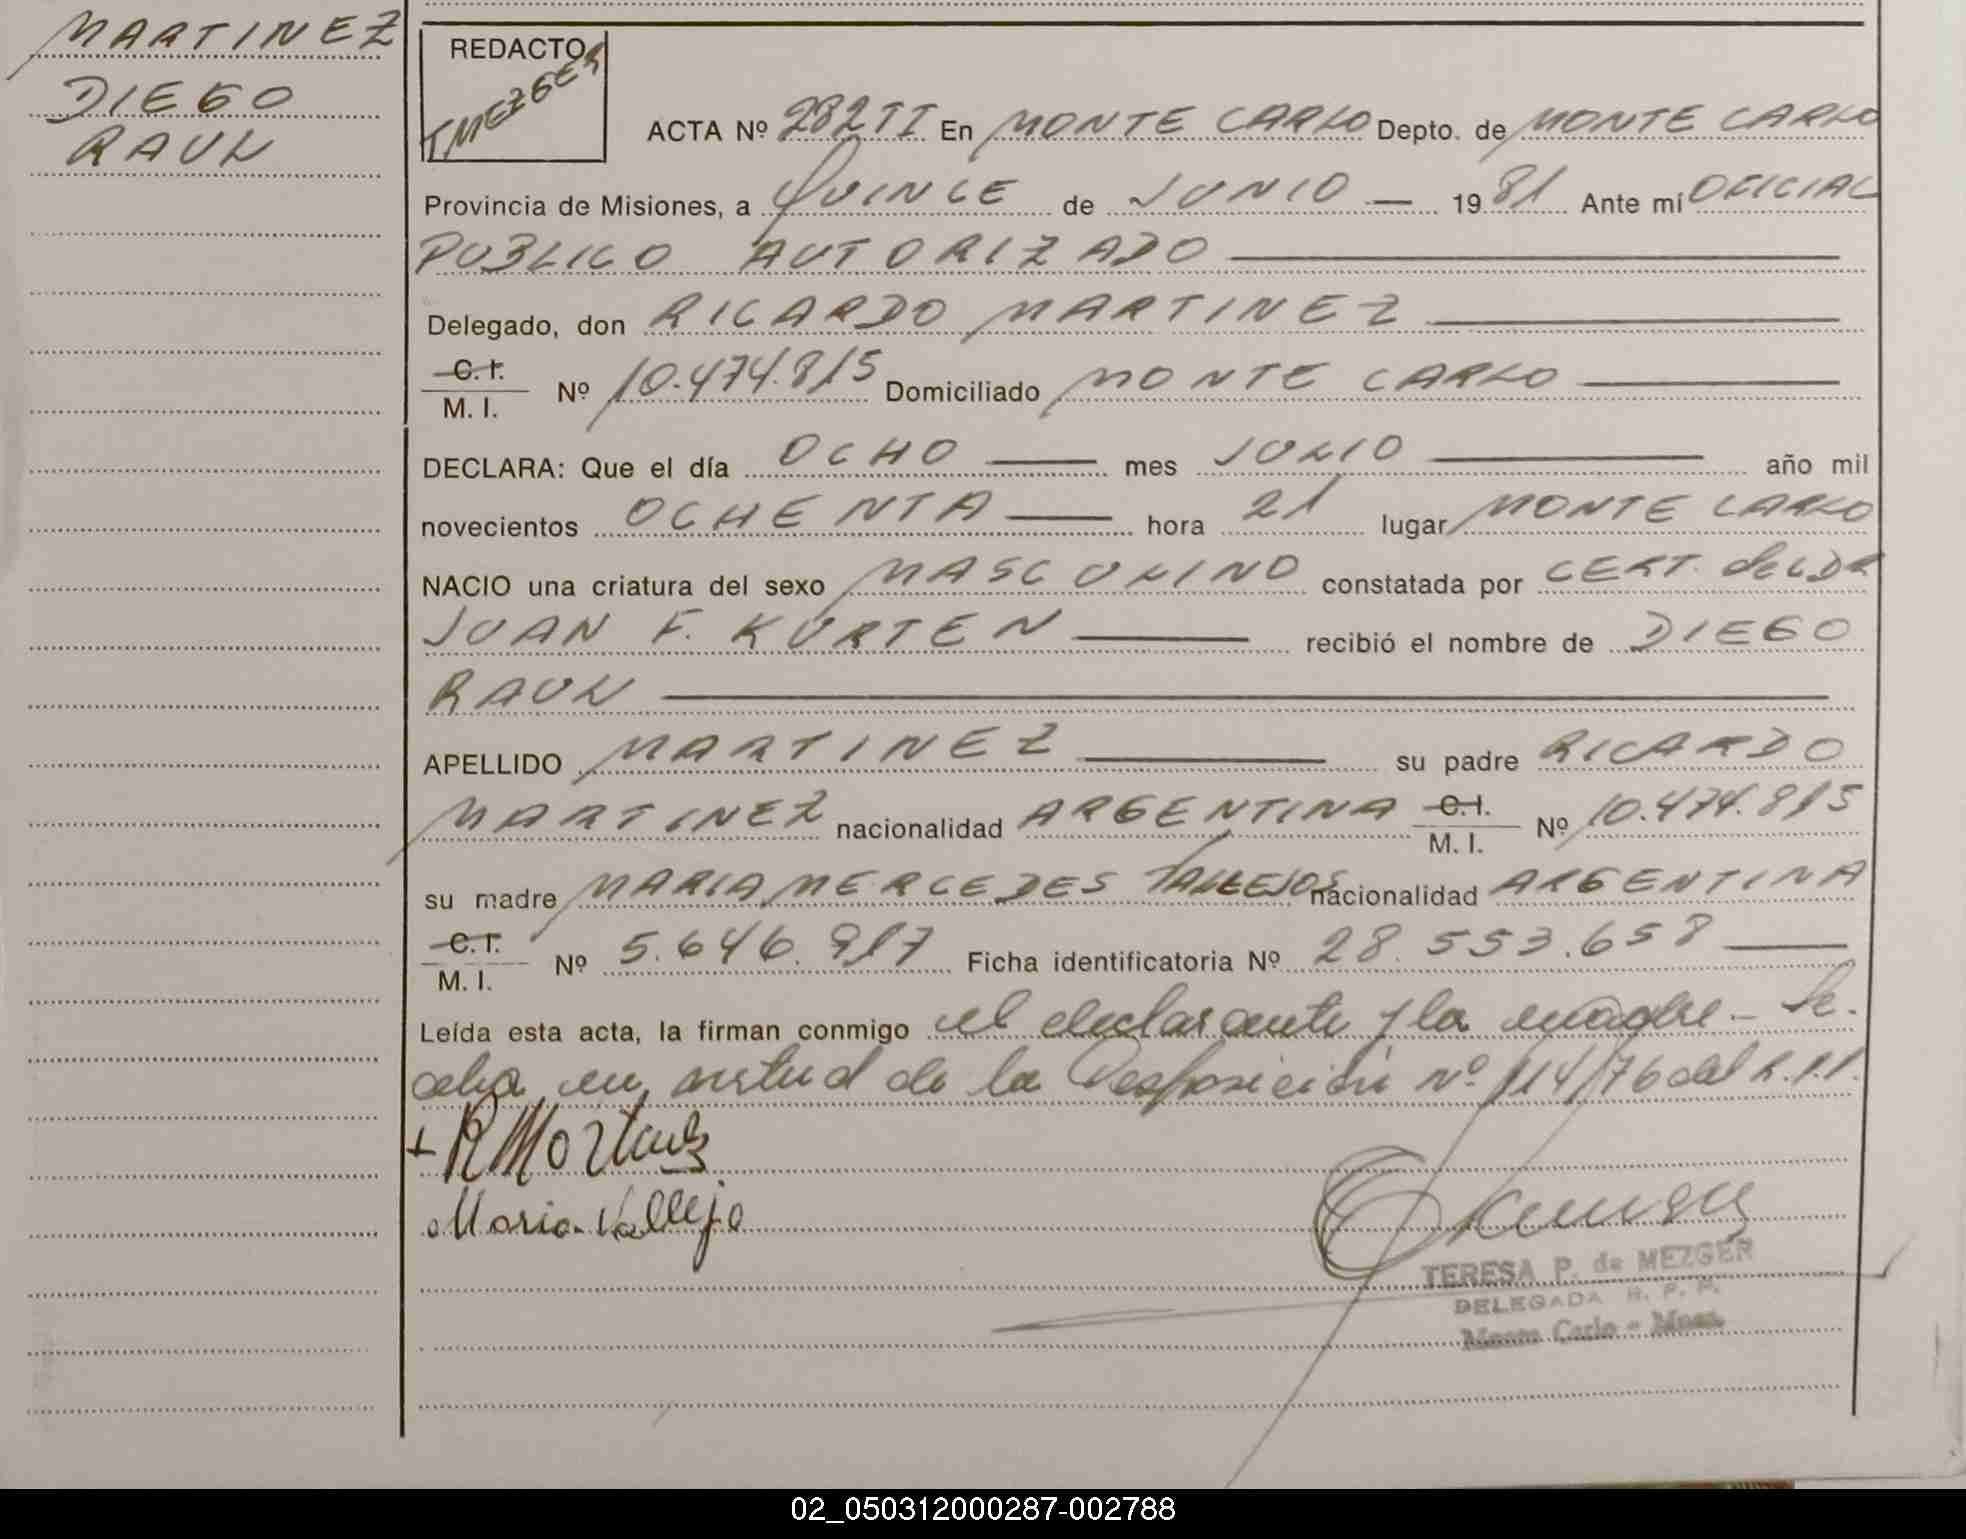 MARTINEZ
DIEGO
RAUL
REDACTO
TMEZGER
ACTA Nº 282TI En MONTE CARLO Depto. de MONTE CARLO
Provincia de Misiones, a QUINCE de JUNIO — 1981 Ante mí OFICIAL
PUBLICO AUTORIZADO
Delegado, don RICARDO MARTINEZ
C.I.
M. I. Nº 10.474.815 Domiciliado MONTE CARLO
DECLARA: Que el día OCHO mes JULIO año mil
novecientos OCHENTA hora 21 lugar MONTE CARLO
NACIO una criatura del sexo MASCULINO constatada por CERT. del DR
JUAN F. KURTEN recibió el nombre de DIEGO
RAUL
APELLIDO MARTINEZ su padre RICARDO
MARTINEZ nacionalidad ARGENTINA C.I. M. I. Nº 10.474.815
su madre MARIA MERCEDES VALLEJOS nacionalidad ARGENTINA
C.I.
M. I. Nº 5.646.917 Ficha identificatoria Nº 28.553.658
Leída esta acta, la firman conmigo el declarante y la madre - Se
labra en virtud de la Disposición Nº 114/76 del R.P.P.
R Martinez
Maria Vallejo
TERESA P. de MEZGER
DELEGADA R. P. P.
Monte Carlo - Mnes.
02_050312000287-002788